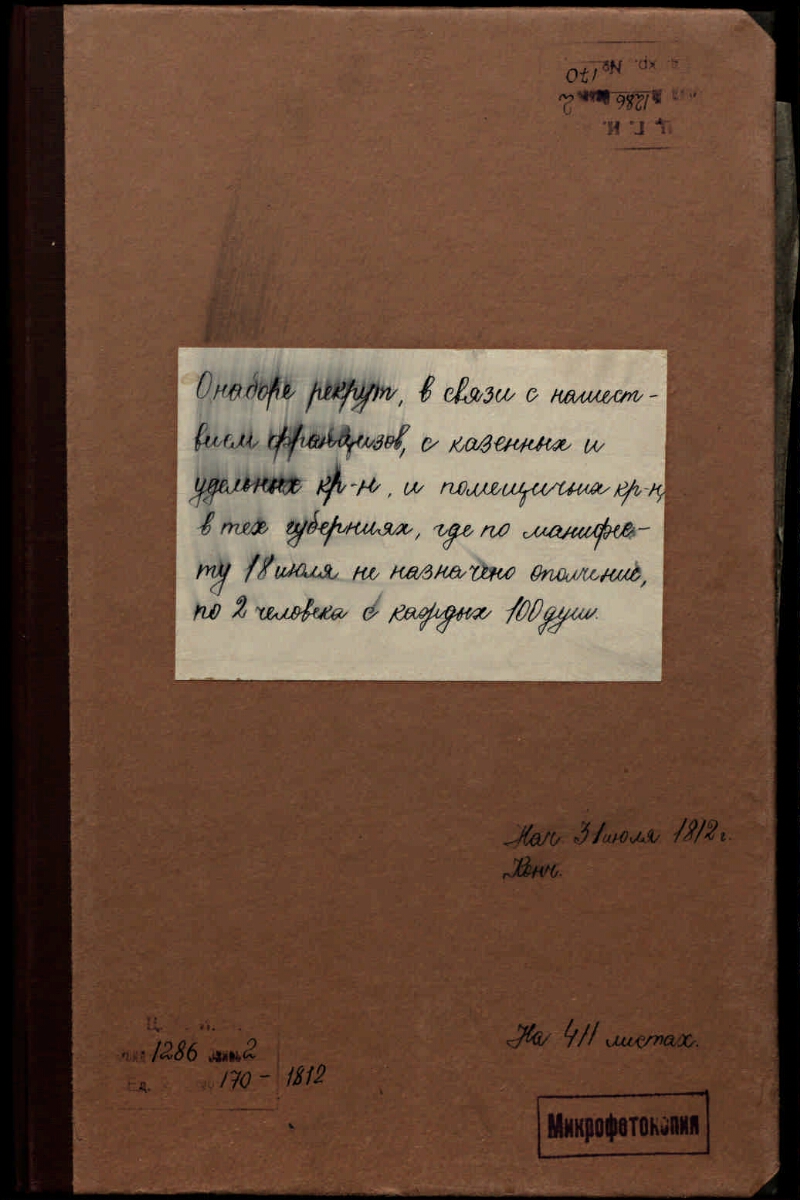 ед. хр. № 170
1286 опись 2
Ц. Г. И.
О наборе рекрут, в связи с нашест-
вием французов, с казенных и
удельных кр-н, и помещичьих кр-н,
в тех губерниях, где по манифес-
ту 18 июля не назначено ополчение,
по 2 человека с каждых 100 душ.
Нач. 31 июля 1812 г.
На 411 листах.
Ц.
1286 опись 2
Ед. 170 - 1812
Микрофотокопия